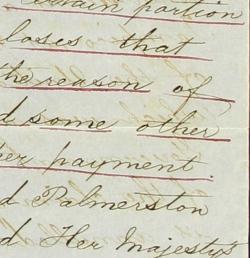 certain portion
loses that
the reason of
d some other
her payment.
d Palmerston
d Her Majesty's